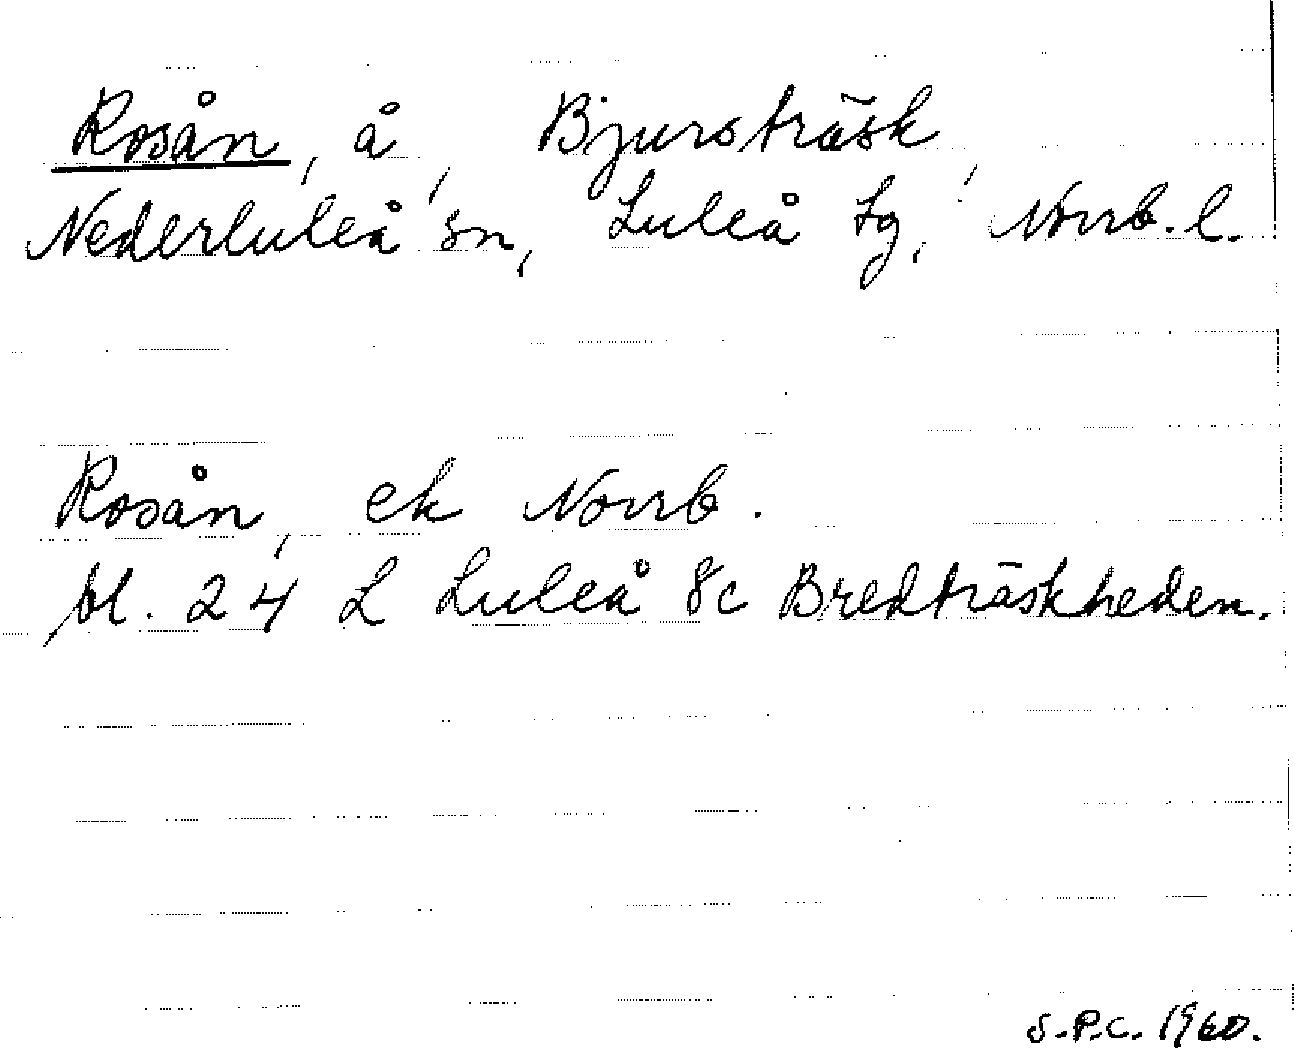 Rosån, å, Bjursträsk,
Nederluleå sn, Luleå tg, Norrb. l.
Rosån, ek Norrb.
bl. 24 L Luleå 8c Bredträskheden.
S.P.C. 1960.